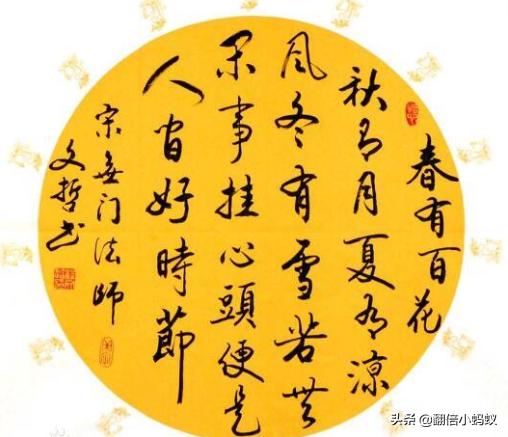 春有百花
秋有月夏有凉
风冬有雪若無
闲事挂心頭便是
人间好時節
宋無门法師
文哲书
头条 @翻倍小蚂蚁